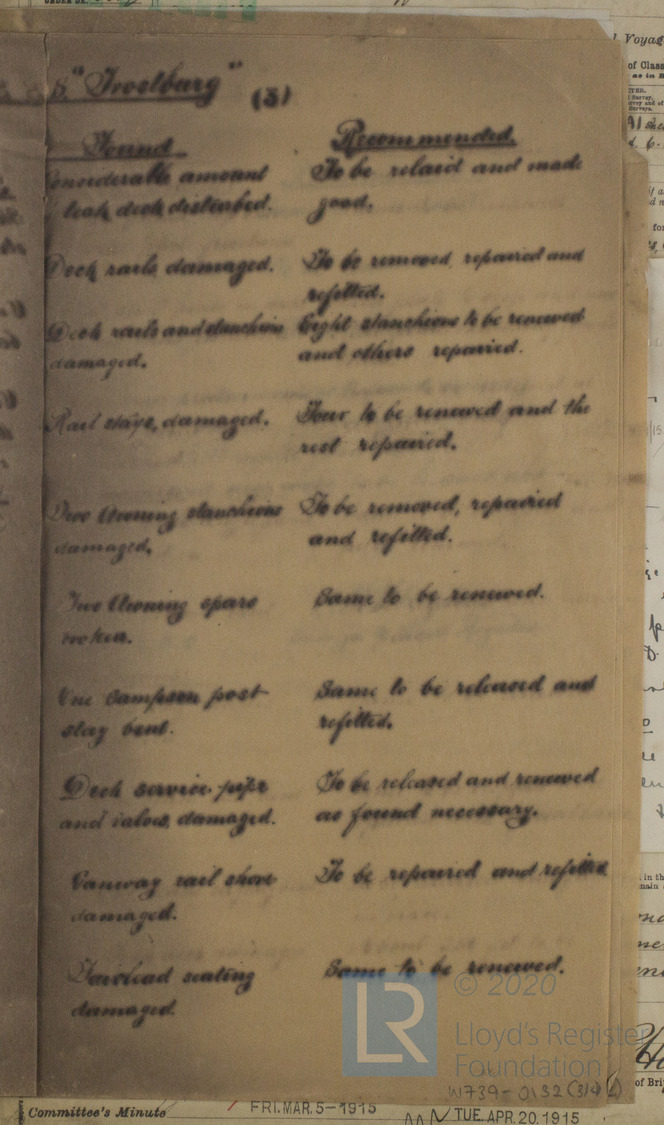 S. "Twelbarg" (3)
Found Recommended.
Considerable amount To be relaid and made
teak deck disturbed. good.
Deck rails damaged. To be removed, repaired and
refitted.
Deck rails and stanchions Eight stanchions to be renewed
damaged. and others repaired.
Rail stays, damaged. Four to be renewed and the
rest repaired.
Two Awning stanchions To be removed, repaired
damaged. and refitted.
Two Awning spars Same to be renewed.
broken.
One Sampson post Same to be released and
stay bent. refitted.
Deck service pipe To be released and renewed
and valves, damaged. as found necessary.
rail To be repaired and refitted
damaged.
Fairlead seating Same to be renewed.
damaged.
© 2020
LR
Lloyd's Register
Foundation
W739-0132 (3/4)
Committee's Minute FRI. MAR. 5-1915
TUE. APR. 20. 1915
Voyag
of Class
as in
of Bri